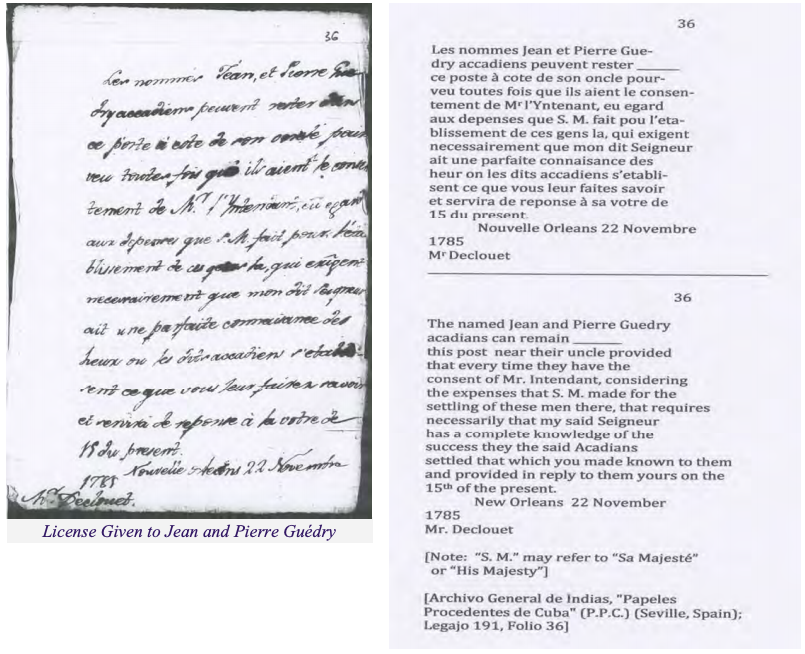 36
Les nommés Jean, et Pierre Gue-
dry accadiens peuvent rester dans
ce poste à cote de son oncle pour
veu toutes fois que ils aient le conse
tement de Mr. l'Yntendant, eu egard
aux depenses que S. M. fait pour l'eta
blissement de ces gens la, qui exigent
necessairement que mon dit Seigneur
ait une parfaite connaisance des
heux ou les dits accadiens s'etabli-
sent ce que vous leur faires savoir
et servira de reponse à la votre de
15 du present.
Nouvelle Orleans 22 Novembre
1785
Mr. Declouet.
License Given to Jean and Pierre Guédry
36
Les nommes Jean et Pierre Gue-
dry accadiens peuvent rester ______
ce poste à cote de son oncle pour-
veu toutes fois que ils aient le consen-
tement de Mr l'Yntenant, eu egard
aux depenses que S. M. fait pou l'eta-
blissement de ces gens la, qui exigent
necessairement que mon dit Seigneur
ait une parfaite connaisance des
heur on les dits accadiens s'etabli-
sent ce que vous leur faites savoir
et servira de reponse à sa votre de
15 du present.
Nouvelle Orleans 22 Novembre
1785
Mr Declouet
36
The named Jean and Pierre Guedry
acadians can remain ______
this post near their uncle provided
that every time they have the
consent of Mr. Intendant, considering
the expenses that S. M. made for the
settling of these men there, that requires
necessarily that my said Seigneur
has a complete knowledge of the
success they the said Acadians
settled that which you made known to them
and provided in reply to them yours on the
15th of the present.
New Orleans 22 November
1785
Mr. Declouet
[Note: "S. M." may refer to "Sa Majesté"
or "His Majesty"]
[Archivo General de Indias, "Papeles
Procedentes de Cuba" (P.P.C.) (Seville, Spain);
Legajo 191, Folio 36]